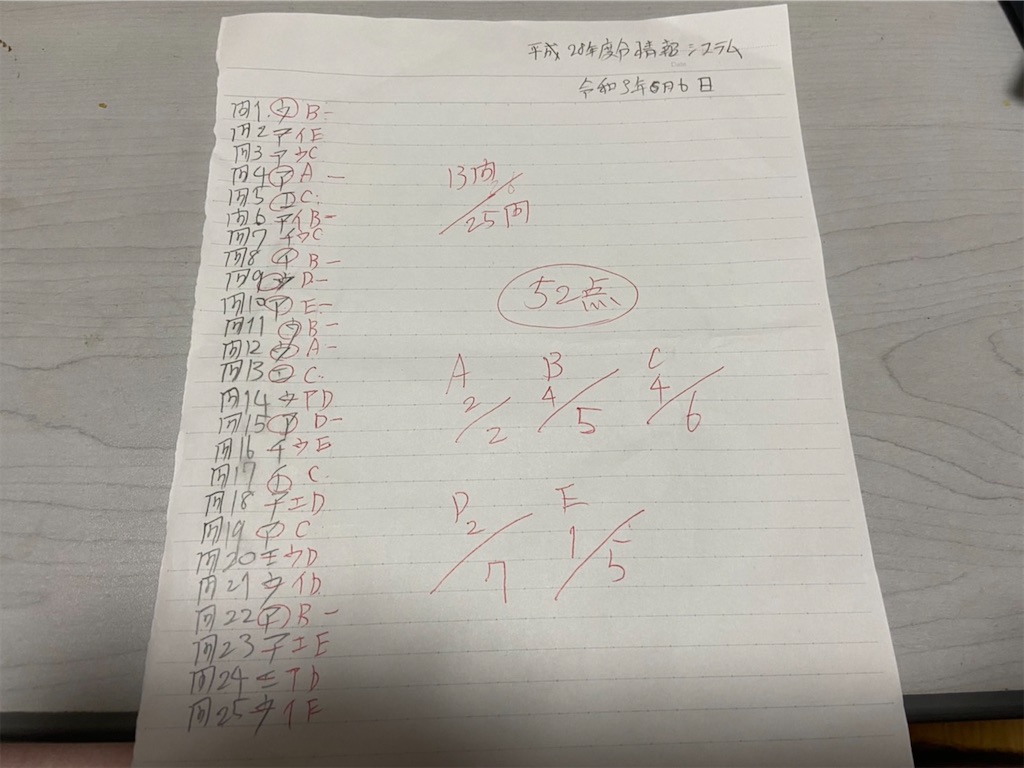 平成28年度分情報システム
令和3年6月6日
問1 ウ B-
問2 ア イ E
問3 ア ウ C
問4 ア A -
問5 エ C.
問6 ア イ B-
問7 イ ウ C
問8 イ B-
問9 ウ D-
問10 ア E-
問11 ウ B-
問12 ウ A-
問13 エ C.
問14 ウ ア D
問15 ア D-
問16 イ ウ E
問17 エ C.
問18 ア エ D
問19 ア C
問20 エ ウ D
問21 ウ イ D
問22 ア B-
問23 ア エ E
問24 エ ア D
問25 ウ イ E
13問
25問
52点
A B C
2/2 4/5 4/6
D E
2/7 1/5